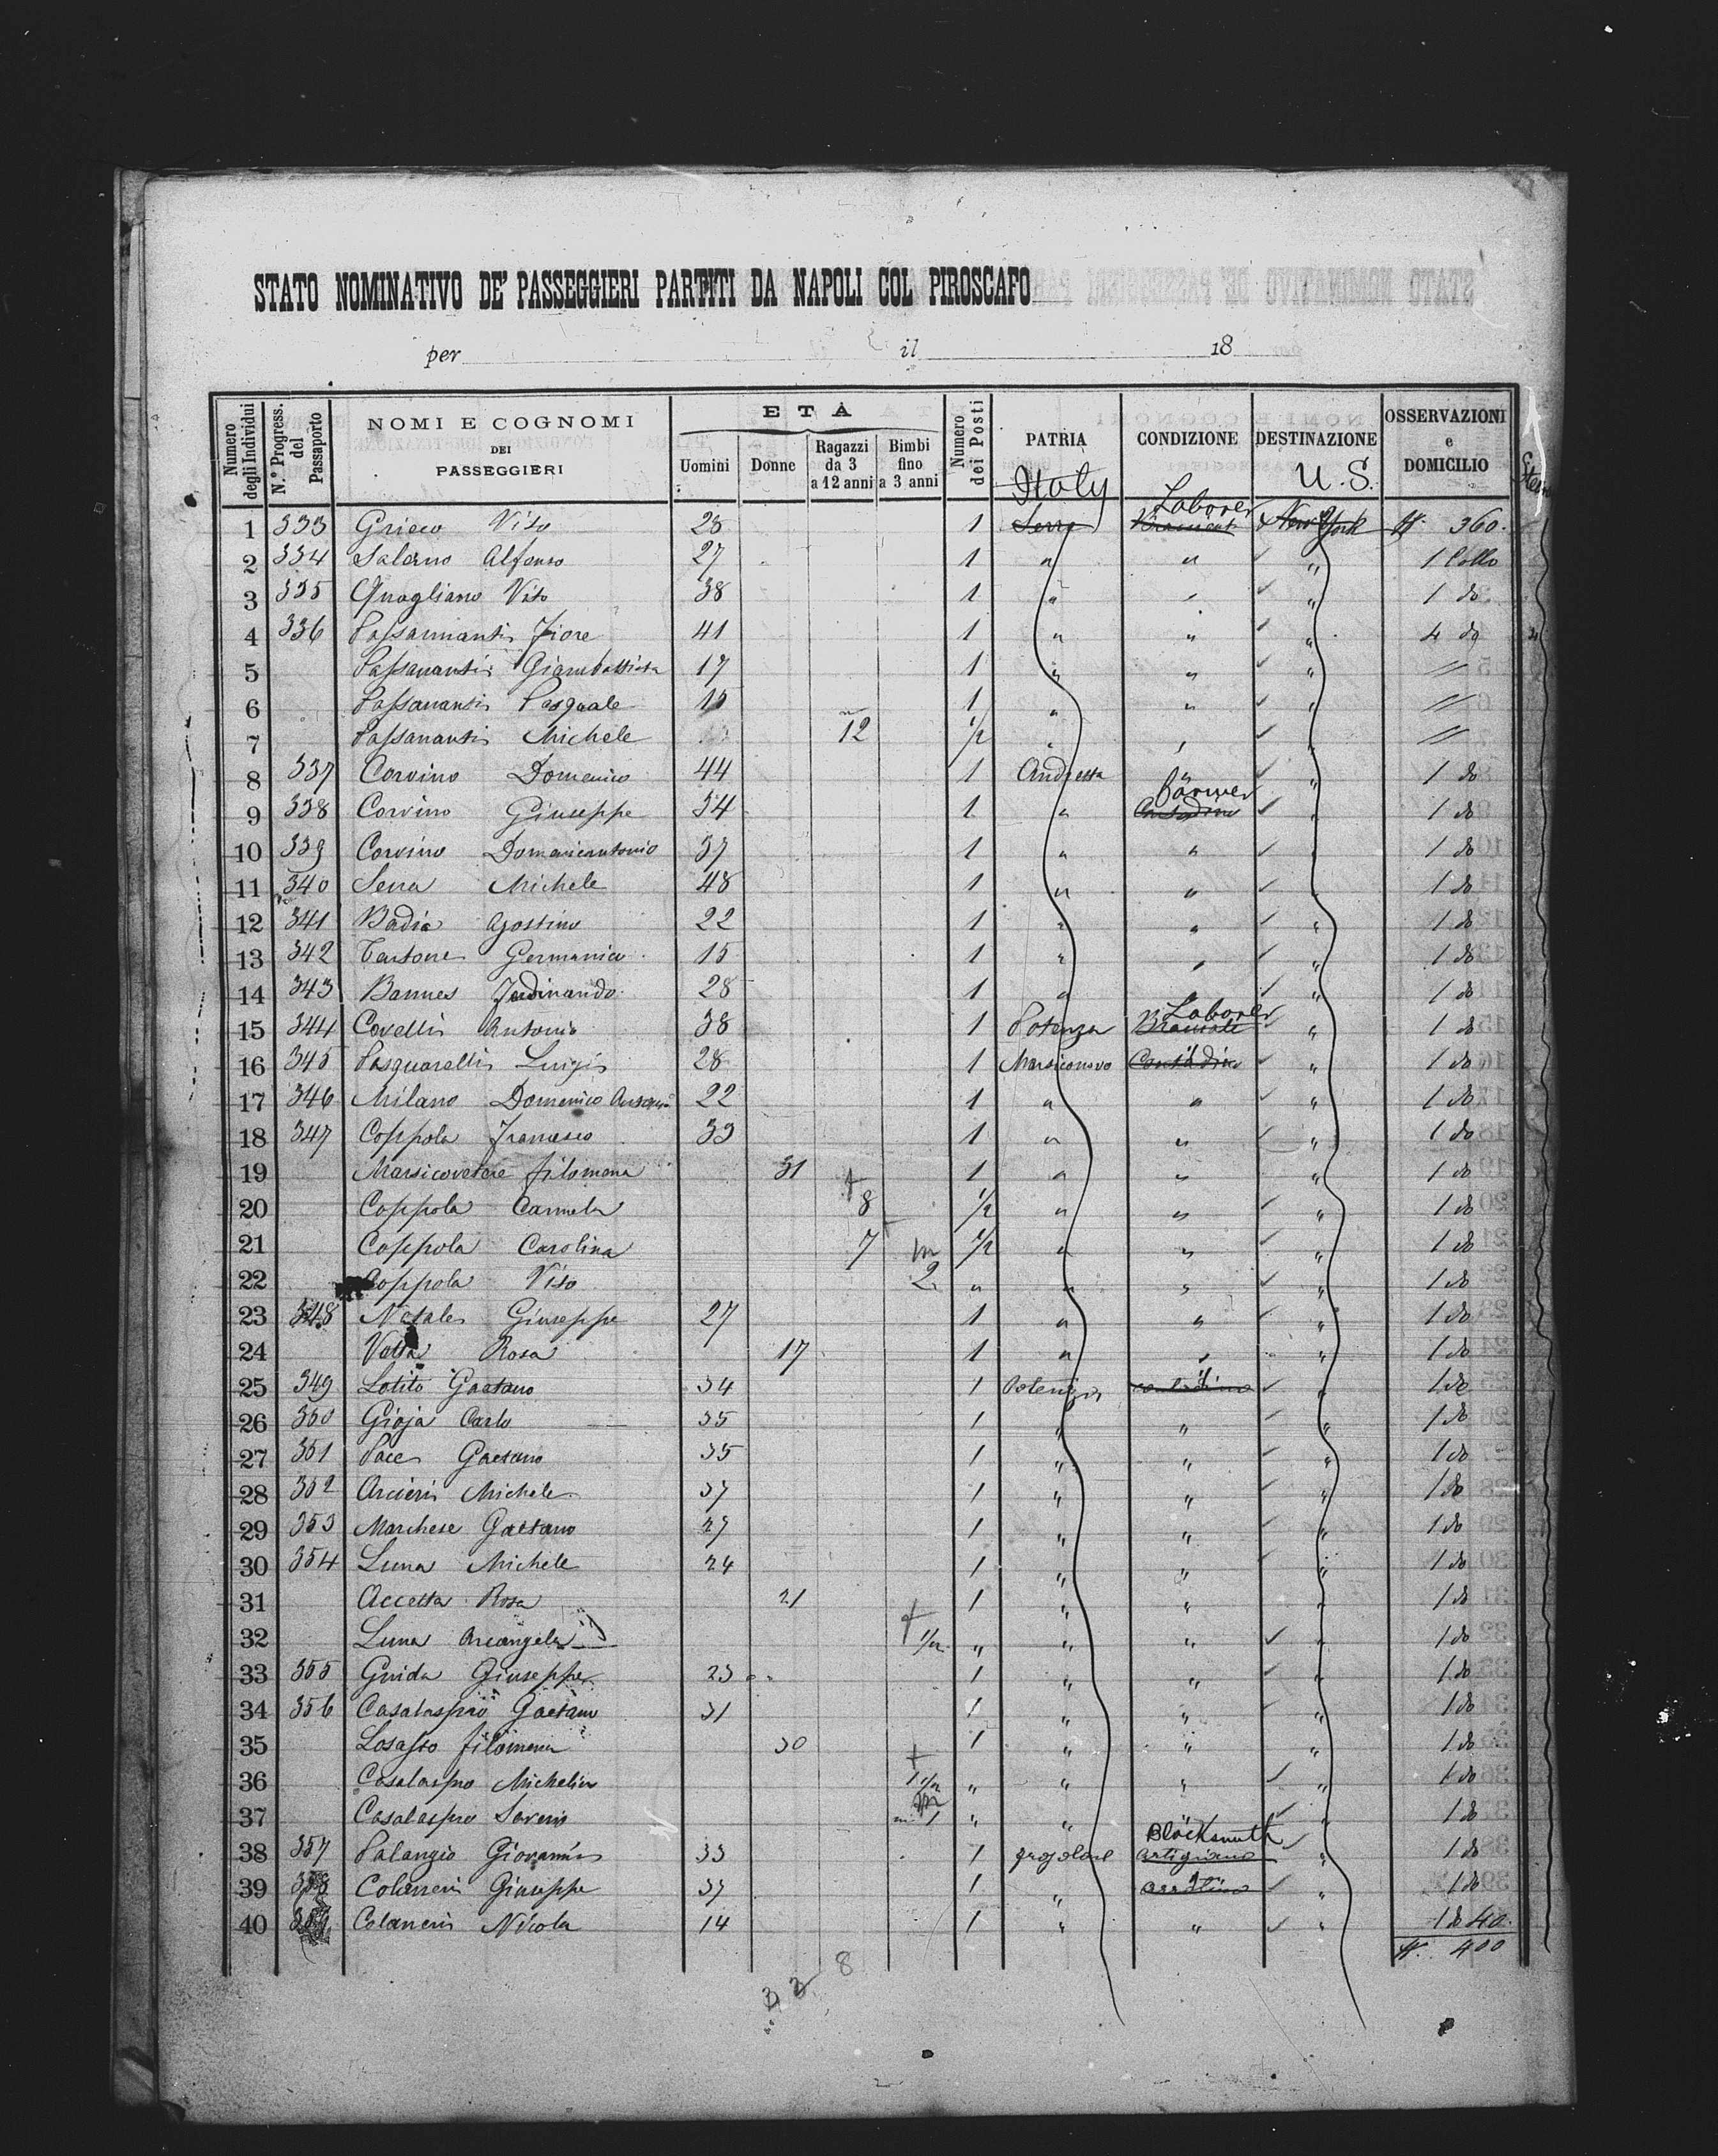 STATO NOMINATIVO DE' PASSEGGIERI PARTITI DA NAPOLI COL PIROSCAFO
per il 18
Numero degli Individui N.° Progress. del Passaporto NOMI E COGNOMI DEI PASSEGGIERI ETÀ Numero dei Posti PATRIA CONDIZIONE DESTINAZIONE OSSERVAZIONI e DOMICILIO
Uomini Donne Ragazzi da 3 a 12 anni Bimbi fino a 3 anni
Italy Laborer U.S.
1 333 Grieco Vito 23 1 Serre New York 360
2 334 Salerno Alfonso 27 1 " " " 1 Collo
3 335 Quagliano Vito 38 1 " " " 1 do
4 336 Passannanti Fiore 41 1 " " " 4 do
5 Passananti Giambattista 17 1 " " " //
6 Passananti Pasquale 15 1 " " " //
7 Passananti Michele 12 1/2 " " " //
8 337 Corvino Domenico 44 1 Andretta " " 1 do
9 338 Corvino Giuseppe 34 1 " farmer Contadino " 1 do
10 339 Corvino Domenicantonio 37 1 " " " 1 do
11 340 Serra Michele 48 1 " " " 1 do
12 341 Badia Agostino 22 1 " " " 1 do
13 342 Germanico 15 1 " " " 1 do
14 343 Ferdinando 28 1 " " " 1 do
15 344 Covelli Antonio 38 1 Potenza Laborer " 1 do
16 345 Pasquarelli Luigi 28 1 Marsiconovo Contadino " 1 do
17 346 Milano Domenico 22 1 " " " 1 do
18 347 Coppola Francesco 33 1 " " " 1 do
19 Marsicovetere Filomena 31 1 " " " 1 do
20 Coppola Carmela 8 1/2 " " " 1 do
21 Coppola Carolina 7 1/2 " " " 1 do
22 Coppola Vito m 2 " " " " 1 do
23 348 Natale Giuseppe 27 1 " " " 1 do
24 Rosa 17 1 " " " 1 do
25 349 Lotito Gaetano 34 1 Potenza contadino " 1 do
26 350 Gioja Carlo 35 1 " " " 1 do
27 351 Pace Gaetano 35 1 " " " 1 do
28 352 Arcieri Michele 37 1 " " " 1 do
29 353 Marchese Gaetano 27 1 " " " 1 do
30 354 Luna Michele 24 1 " " " 1 do
31 Accetta Rosa 21 1 " " " 1 do
32 Luna Arcangela 1/2 " " " " 1 do
33 355 Guida Giuseppe 23 1 " " " 1 do
34 356 Casalaspro Gaetano 31 1 " " " 1 do
35 Losasso Filomena 30 1 " " " 1 do
36 Casalaspro Michelina 1 1/2 " " " " 1 do
37 Casalaspro Saverio m 1 " " " 1 do
38 357 Palangio Giovanni 33 1 Blacksmith artigiano " 1 do
39 358 Colaneri Giuseppe 37 1 " " 1 do
40 359 Colaneri Nicola 14 1 " " " 1 do 40
400
8